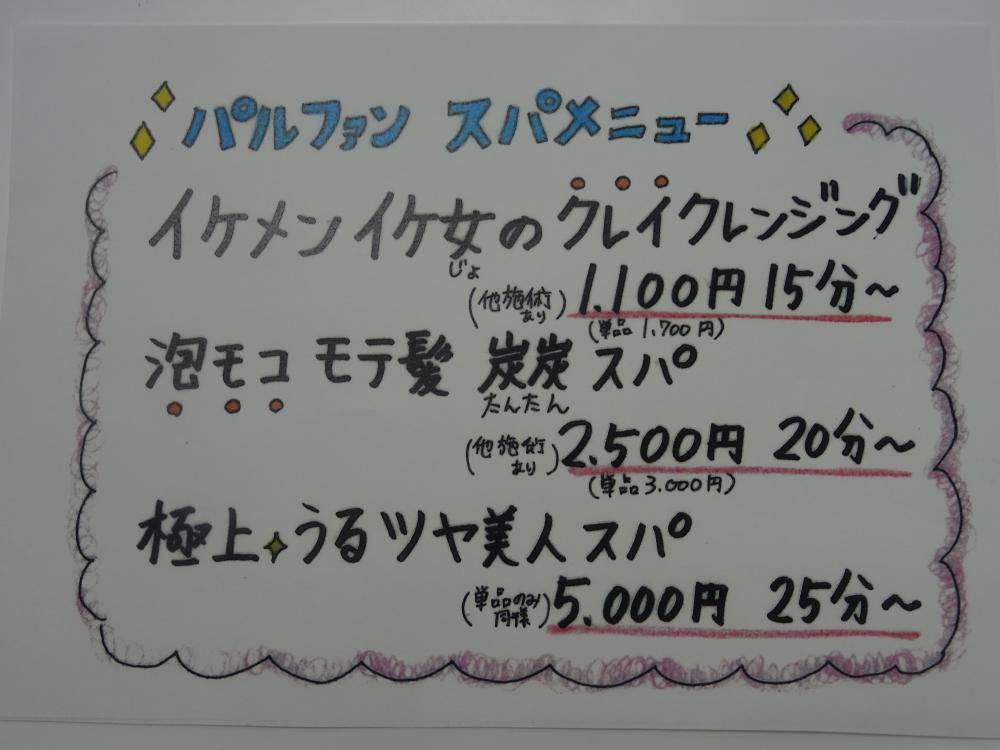 パルファン スパメニュー
イケメン イケ女の クレイクレンジング
じょ
(他施術あり) 1.100円 15分~
(単品 1.700円)
泡モコ モテ髪 炭炭 スパ
たんたん
(他施術あり) 2.500円 20分~
(単品 3.000円)
極上 うるツヤ美人スパ
(単品のみ同様) 5.000円 25分~